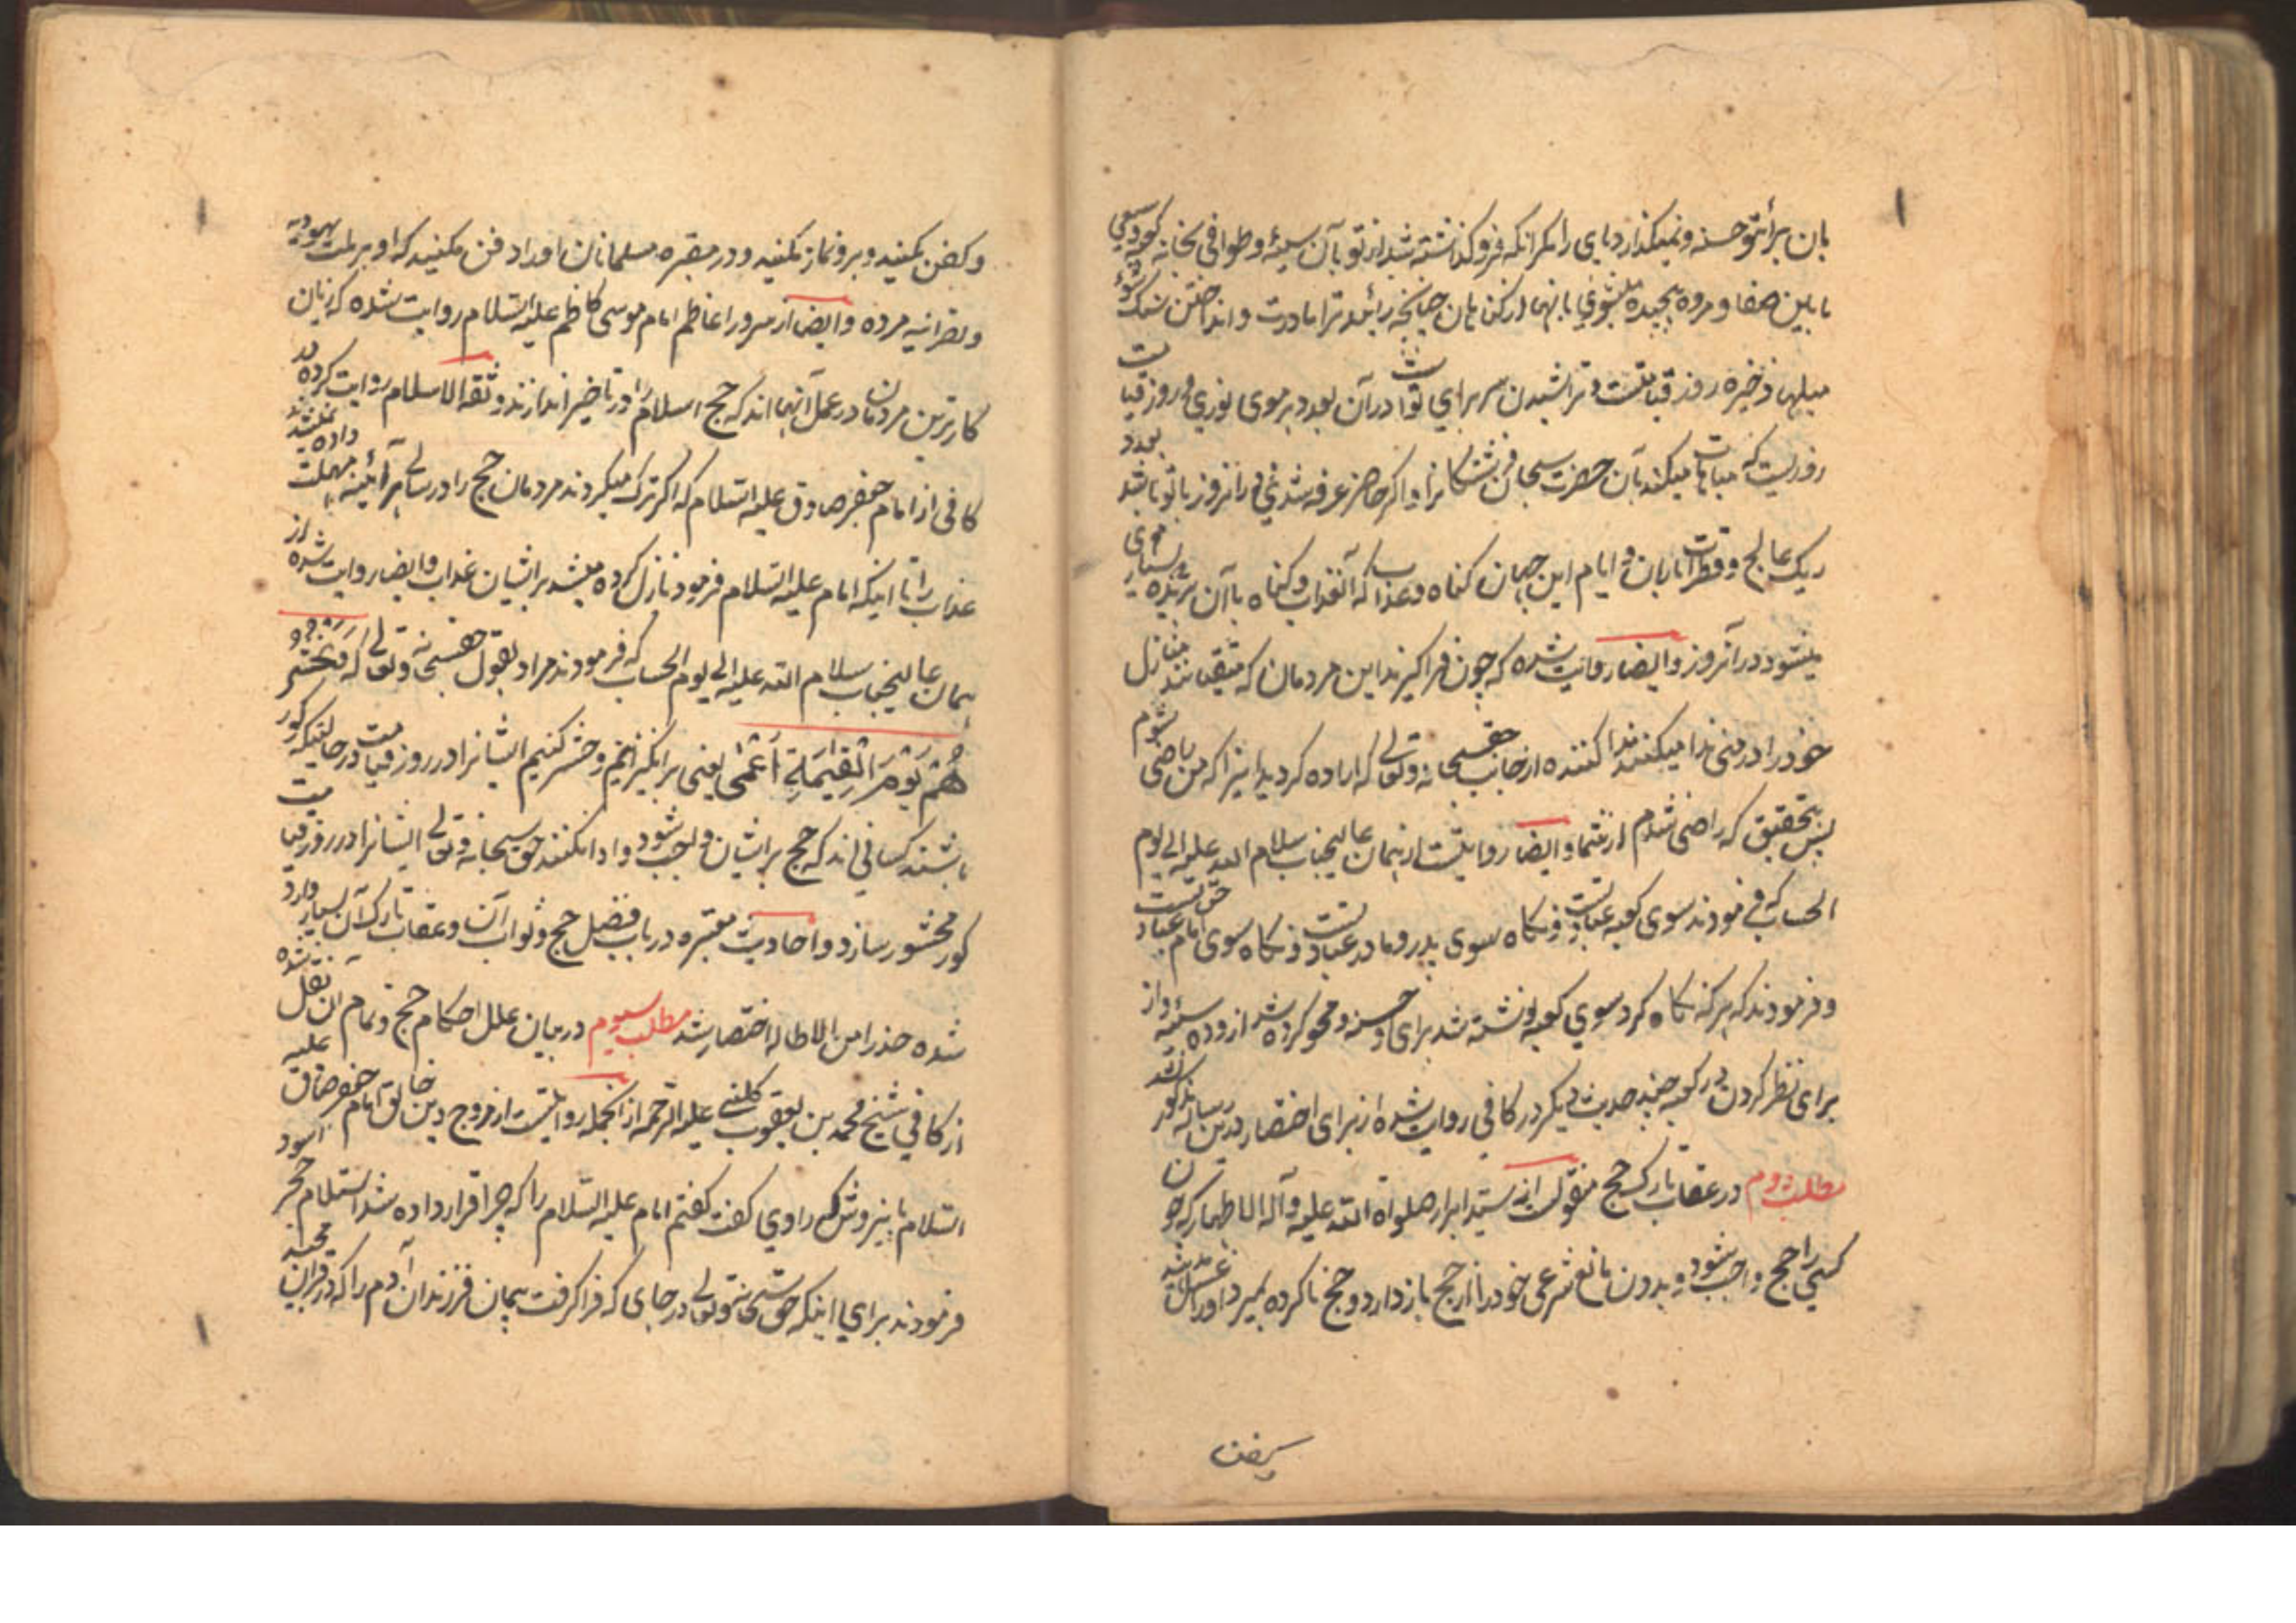 بآن برأ تو حسنه و نمیگذارد پای را مگر آنکه فرو گذاشته شد از تو بآن سیئه و طوافی بخانه کعبه و سعی
مابین صفا و مروه پیچیده میشوی بآنها از گناهان چنانچه زائید ترا مادرت و انداختن سنک
میلها ذخیره روز قیامتست و تراشیدن سر برای تو ادر آن بعدد هر موی نوری در روز قیامت
روزیست که مباهات میکند بآن حضرت سبحان فرشتگانرا و اکر حاضر عرفه شدی در انروز با تو باشد بعدد
ریک عالج و قطرات باران و ایام این جهان کناه و عذاب که آنعذاب و کناه با آن
میشود در آنروز و ایضا روایت شده که چون فراکیرند این مردمان که متیقنند منازل
خود را در منی ندا میکند ندا کننده از جانب حقسبحانه و تعالی که اراده کردید اینرا که من راضی شوم
پس بتحقیق که راضی شدم از شما و ایضا روایتست از همان عالیجناب سلام الله علیه الی یوم
الحساب که فرمودند سوی کعبه عبادتست و نکاه سوی پدر و مادر عبادتست و نکاه سوی امام عبادتست
و فرمودند که هر که نکاه کرد سوی کعبه نوشته شد برای او حسنه و محو کرده شد از و ده سیئه و از
برای نظر کردن در کعبه چند حدیث دیکر در کافی روایت شده از برای اختصار درین رساله مذکور نشد
مطلب دوم در عقاب تارک حج منقولست از سید ابرار صلواة الله علیه و آله الاطهار که چون
کسی را حج واجب شود و بدون مانع شرعی خود را از حج باز دارد و حج ناکرده بمیرد او را غسل
و کفن مکنید و برو نماز مکنید و در مقبره مسلمانان او را دفن مکنید که او بر ملت یهودیه
و نصرانیه مرده و ایضا از سرور اعاظم امام موسی کاظم علیه السلام روایت شده که زیان
کارترین مردمان در عمل آنهااند که حج اسلام را در تاخیر اندازند و ثقة الاسلام روایت کرده در
کافی از امام جعفر صادق علیه السلام که اکر ترک میکردند مردمان حج را در سالی هر آئینه مهلت داده نمیشدند
عذاب را تا اینکه امام علیه السلام فرمود نازل کرده میشد بر ایشان عذاب و ایضا روایت شده از
همان عالیجناب سلام الله علیه الی یوم الحساب که فرمودند مراد بقول حقسبحانه و تعالی که و نحشر
هم یوم القیمة اعمی یعنی بر انکیزانیم و حشر کنیم ایشانرا در روز قیامت در حالتیکه کور
باشند کسانی اند که حج بر ایشان واجب شود و ادا نکنند حق سبحانه و تعالی ایشانرا در روز قیامت
کور محشور سازد و احادیث معتبره در باب فضل حج و ثواب آن و عقاب تارک آن بسیار وارد
شده حذرا من الاطاله اختصار شد مطلب سیوم در بیان علل احکام حج و تمام آن نقل شده
از کافی شیخ محمد بن یعقوب کلینی علیه الرحمه از آنجمله روایتست از مروج دین خالق امام جعفر صادق علیه
السلام راوی کفت کفتم امام علیه السلام را که چرا قرار داده شد استلام حجر اسود
فرمودند برای اینکه حق سبحانه و تعالی در جای که فرا کرفت پیمان فرزندان آدم را که در قران مجید